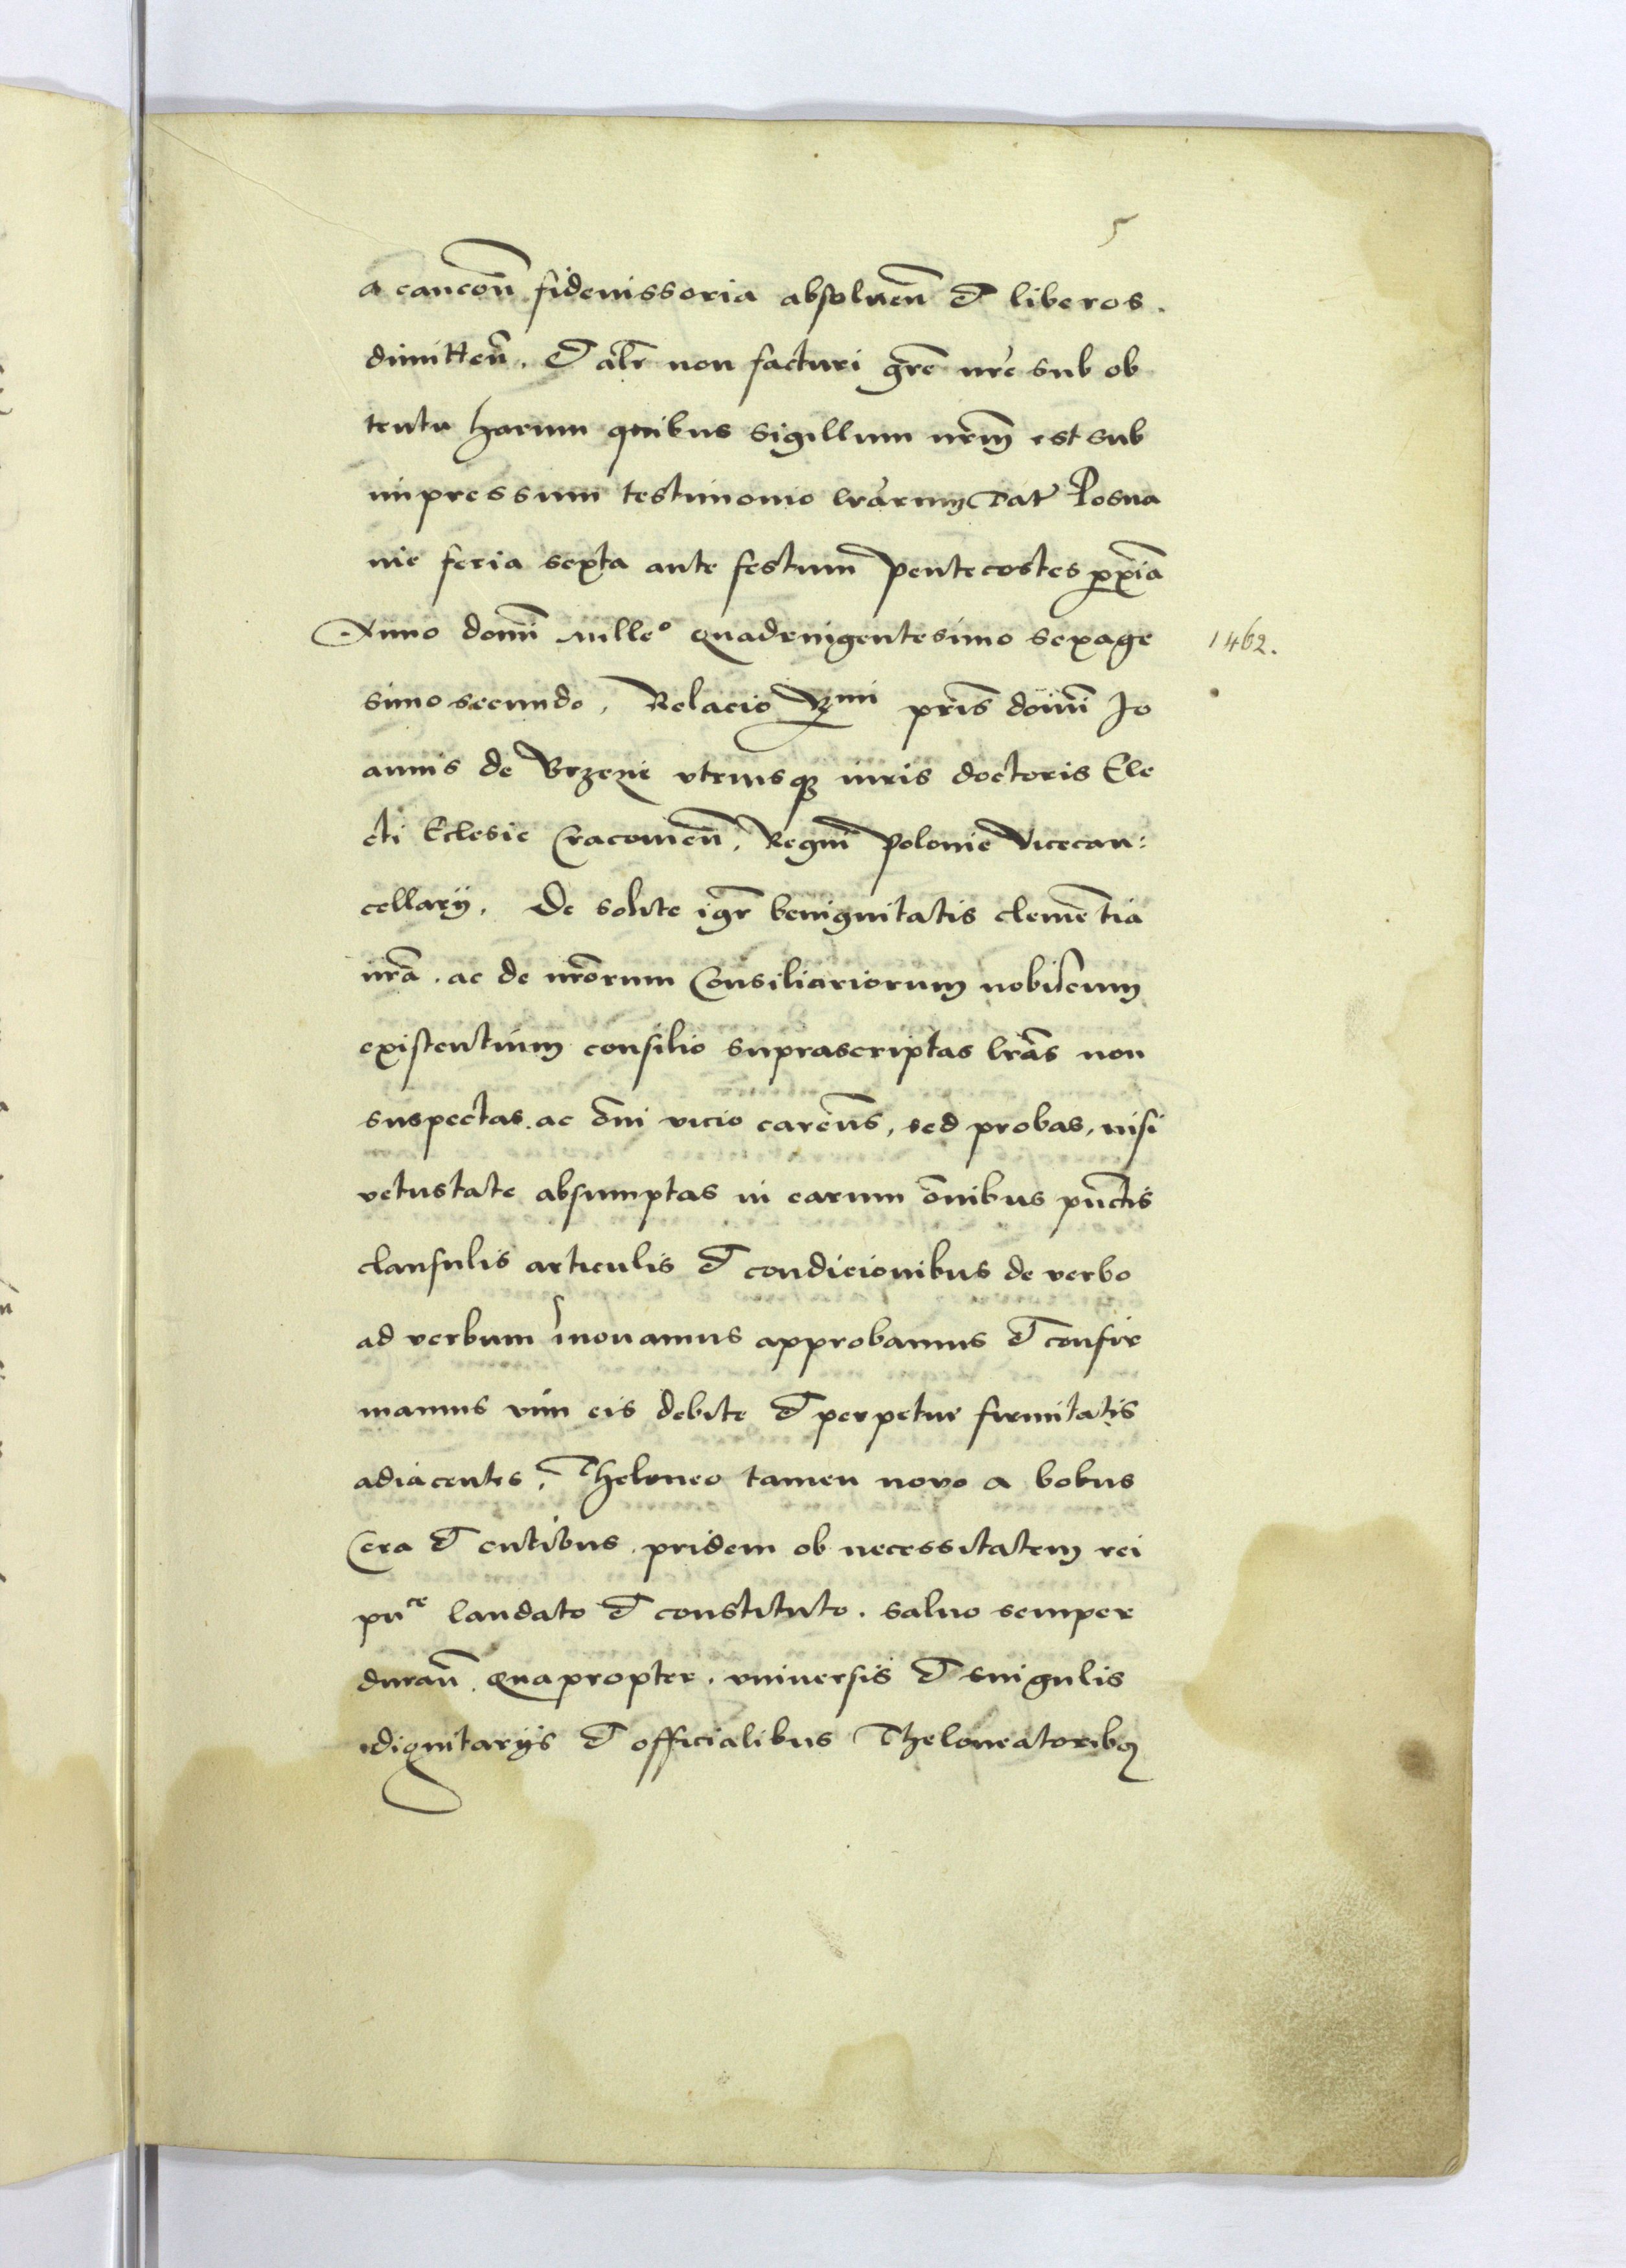 5
a caucoñ fideiussoria absoluen̄ et liberos.
dimitten̄. Et alr̄ non facturi gr̄e nr̄e sub ob
tentu harum quibus sigillum nr̄m est sub
impressum testimonio lr̄arum Dat̄ Posna
nie feria sexta ante festum Pentecostes p̱xīa
Anno domī Mille° quadringentesimo sexage
simo secundo, Relacio pr̄is domī Jo
annis de Brzezie vtriusqꝫ iuris doctoris Ele
cti Eclesie Cracouien̄, Regni Polonie Vicecan:
cellarij. De solite igr̄ benignitatis clemētia
nr̄a. ac de nr̄orum Consiliariorum nobiscum
existentium consilio suprascriptas lr̄as non
suspectas. ac om̄i vicio careñs, sed probas, nisi
vetustate absumptas in earum om̄ibus pūctis
clausulis articulis et condicionibus de verbo
ad verbum innouamus approbamus et confir
mamus vim eis debite et perpetue firmitatis
adiacentes, Theloneo tamen novo a bobus
Cera et cutibus. pridem ob necessitatem rei
pu^ce laudato et constituto. saluo semper
duran̄. Quapropter. vniuersis et singulis
dignitarijs et officialibus Theloneatoribꝫ
1462.